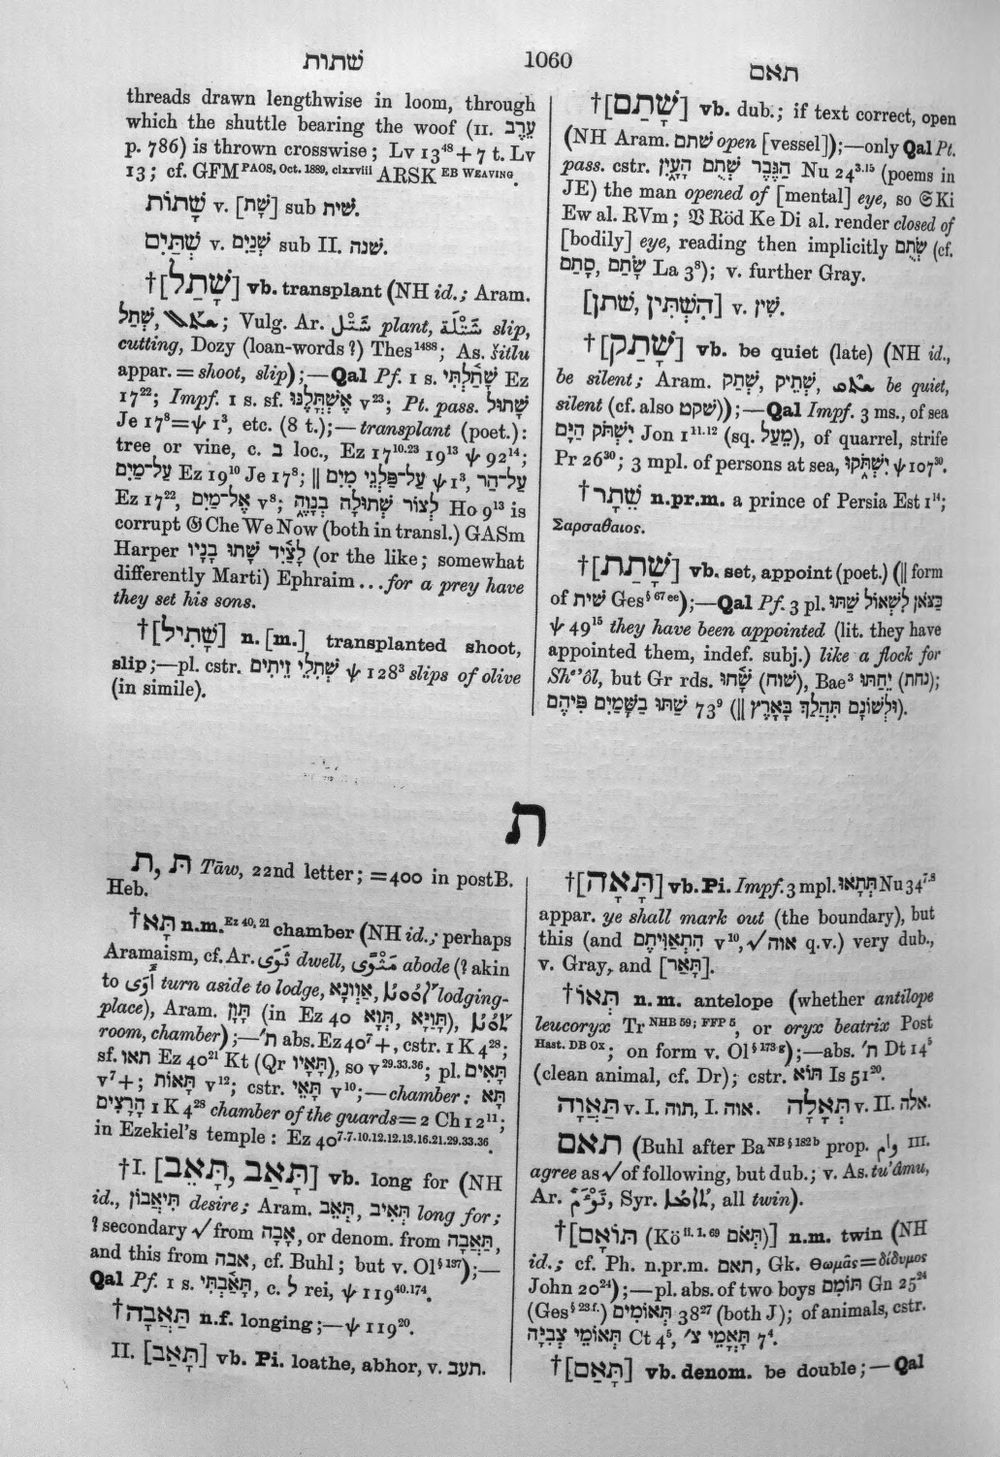 שׁתות 1060 תאם
threads drawn lengthwise in loom, through
which the shuttle bearing the woof (II. עֵרֶב
p. 786) is thrown crosswise; Lv 13⁴⁸ + 7 t. Lv
13; cf. GFM PAOS, Oct. 1889, clxxviii ARSK EB WEAVING.
שָׁתוֹת v. [שֵׁת] sub שׁית.
שְׁתַּיִם v. שְׁנַיִם sub II. שׁנה.
†[שָׁתַל] vb. transplant (NH id.; Aram.
שְׁתַל, ; Vulg. Ar. شَتَلَ plant, شَتْلَة slip,
cutting, Dozy (loan-words?) Thes¹⁴⁸⁸; As. šitlu
appar. = shoot, slip);—Qal Pf. 1 s. שָׁתַלְתִּי Ez
17²²; Impf. 1 s. sf. אֶשְׁתֳּלֶנּוּ v²³; Pt. pass. שָׁתוּל
Je 17⁸=ψ 1³, etc. (8 t.);—transplant (poet.):
tree or vine, c. ב loc., Ez 17¹⁰·²³ 19¹³ ψ 92¹⁴;
עַל־מַיִם Ez 19¹⁰ Je 17⁸; ‖ עַל־פַּלְגֵי מַיִם ψ 1³, עַל־הַר
Ez 17²², אֶל־מַיִם v⁸; לְצוֹר שְׁתוּלָה בְנָוֶה Ho 9¹³ is
corrupt 𝔊 Che We Now (both in transl.) GASm
Harper לְצַיִד שָׁתוּ בָנָיו (or the like; somewhat
differently Marti) Ephraim...for a prey have
they set his sons.
†[שָׁתִיל] n.[m.] transplanted shoot,
slip;—pl. cstr. שְׁתִלֵי זֵיתִים ψ 128³ slips of olive
(in simile).
†[שָׁתַם] vb. dub.; if text correct, open
(NH Aram. שׁתם open [vessel]);—only Qal Pt.
pass. cstr. הַגֶּבֶר שְׁתֻם הָעָיִן Nu 24³·¹⁵ (poems in
JE) the man opened of [mental] eye, so 𝔖 Ki
Ew al. RVm; 𝔙 Röd Ke Di al. render closed of
[bodily] eye, reading then implicitly שְׂתֻם (cf.
שָׂתַם, סָתַם La 3⁸); v. further Gray.
[הִשְׁתִּין, שׁתן] v. שִׁין.
†[שָׁתַק] vb. be quiet (late) (NH id.,
be silent; Aram. שְׁתֵיק, שְׁתַק, be quiet,
silent (cf. also שׁקט));—Qal Impf. 3 ms., of sea
יִשְׁתֹּק הַיָּם Jon 1¹¹·¹² (sq. מֵעַל), of quarrel, strife
Pr 26³⁰; 3 mpl. of persons at sea, יִשְׁתֹּקוּ ψ 107³⁰.
†שֵׁתָר n.pr.m. a prince of Persia Est 1¹⁴;
Σαρσαθαιος.
†[שָׁתַת] vb. set, appoint (poet.) (‖ form
of שׁית Ges§ 67 ee);—Qal Pf. 3 pl. כַּצֹּאן לִשְׁאוֹל שַׁתּוּ
ψ 49¹⁵ they have been appointed (lit. they have
appointed them, indef. subj.) like a flock for
Sh<sup>e</sup>’ôl, but Gr rds. שָׁחוּ (שׁוח), Bae³ יֵחַתּוּ (נחת);
שַׁתּוּ בַשָּׁמַיִם פִּיהֶם 73⁹ (‖ וּלְשׁוֹנָם תִּהֲלַךְ בָּאָרֶץ).
ת
ת, תּ Tāw, 22nd letter; =400 in postB.
Heb.
†תָּא n.m. Ez 40, 21 chamber (NH id.; perhaps
Aramaism, cf. Ar. ثَوَى dwell, مَثْوًى abode (? akin
to أَوَى turn aside to lodge, אֲוָנָא, lodging-
place), Aram. תָּוָן (in Ez 40 תָּוָא, תָּוַיָּא),
room, chamber);—ת׳ abs. Ez 40⁷+, cstr. 1 K 4²⁸;
sf. תאו Ez 40²¹ Kt (Qr תָּאָיו), so v²⁹·³³·³⁶; pl. תָּאִים
v⁷+; תָּאוֹת v¹²; cstr. תָּאֵי v¹⁰;—chamber: תָּא
הָרָצִים 1 K 4²⁸ chamber of the guards=2 Ch 12¹¹;
in Ezekiel's temple: Ez 40⁷·⁷·¹⁰·¹²·¹²·¹³·¹⁶·²¹·²⁹·³³·³⁶.
†I. [תָּאַב, תָּאֵב] vb. long for (NH
id., תֵּיאָבוֹן desire; Aram. תְּאִיב, תְּאֵב long for;
? secondary √ from אָבָה, or denom. from תַּאֲבָה,
and this from אבה, cf. Buhl; but v. Ol§ 197);—
Qal Pf. 1 s. תָּאַבְתִּי, c. לְ rei, ψ 119⁴⁰·¹⁷⁴.
†תַּאֲבָה n.f. longing;—ψ 119²⁰.
II. [תָּאַב] vb. Pi. loathe, abhor, v. תעב.
†[תָּאָה] vb. Pi. Impf. 3 mpl. תְּתָאוּ Nu 34⁷·⁸
appar. ye shall mark out (the boundary), but
this (and הִתְאַוִּיתֶם v¹⁰, √ אוה q.v.) very dub.,
v. Gray, and [תָּאַר].
†תְּאוֹ n.m. antelope (whether antilope
leucoryx Tr NHB 59; FFP 5, or oryx beatrix Post
Hast. DB Ox; on form v. Ol§ 173 g);—abs. ת׳ Dt 14⁵
(clean animal, cf. Dr); cstr. תּוֹא Is 51²⁰.
תַּאֲוָה v. I. אוה, I. תוה. תַּאֲלָה v. II. אלה.
תאם (Buhl after Ba NB§ 182 b prop. وأم III.
agree as √ of following, but dub.; v. As. tu’âmu,
Ar. تَوْءَم, Syr. , all twin).
†[תּוֹאָם (Kö II. 1. 69 תְּאֹם)] n.m. twin (NH
id.; cf. Ph. n.pr.m. תאם, Gk. Θωμᾶς=δίδυμος
John 20²⁴);—pl. abs. of two boys תּוֹמִם Gn 25²⁴
(Ges§ 23 f.) תְּאוֹמִים 38²⁷ (both J); of animals, cstr.
תְּאוֹמֵי צְבִיָּה Ct 4⁵, תָּאֳמֵי צ׳ 7⁴.
†[תָּאַם] vb. denom. be double;—Qal